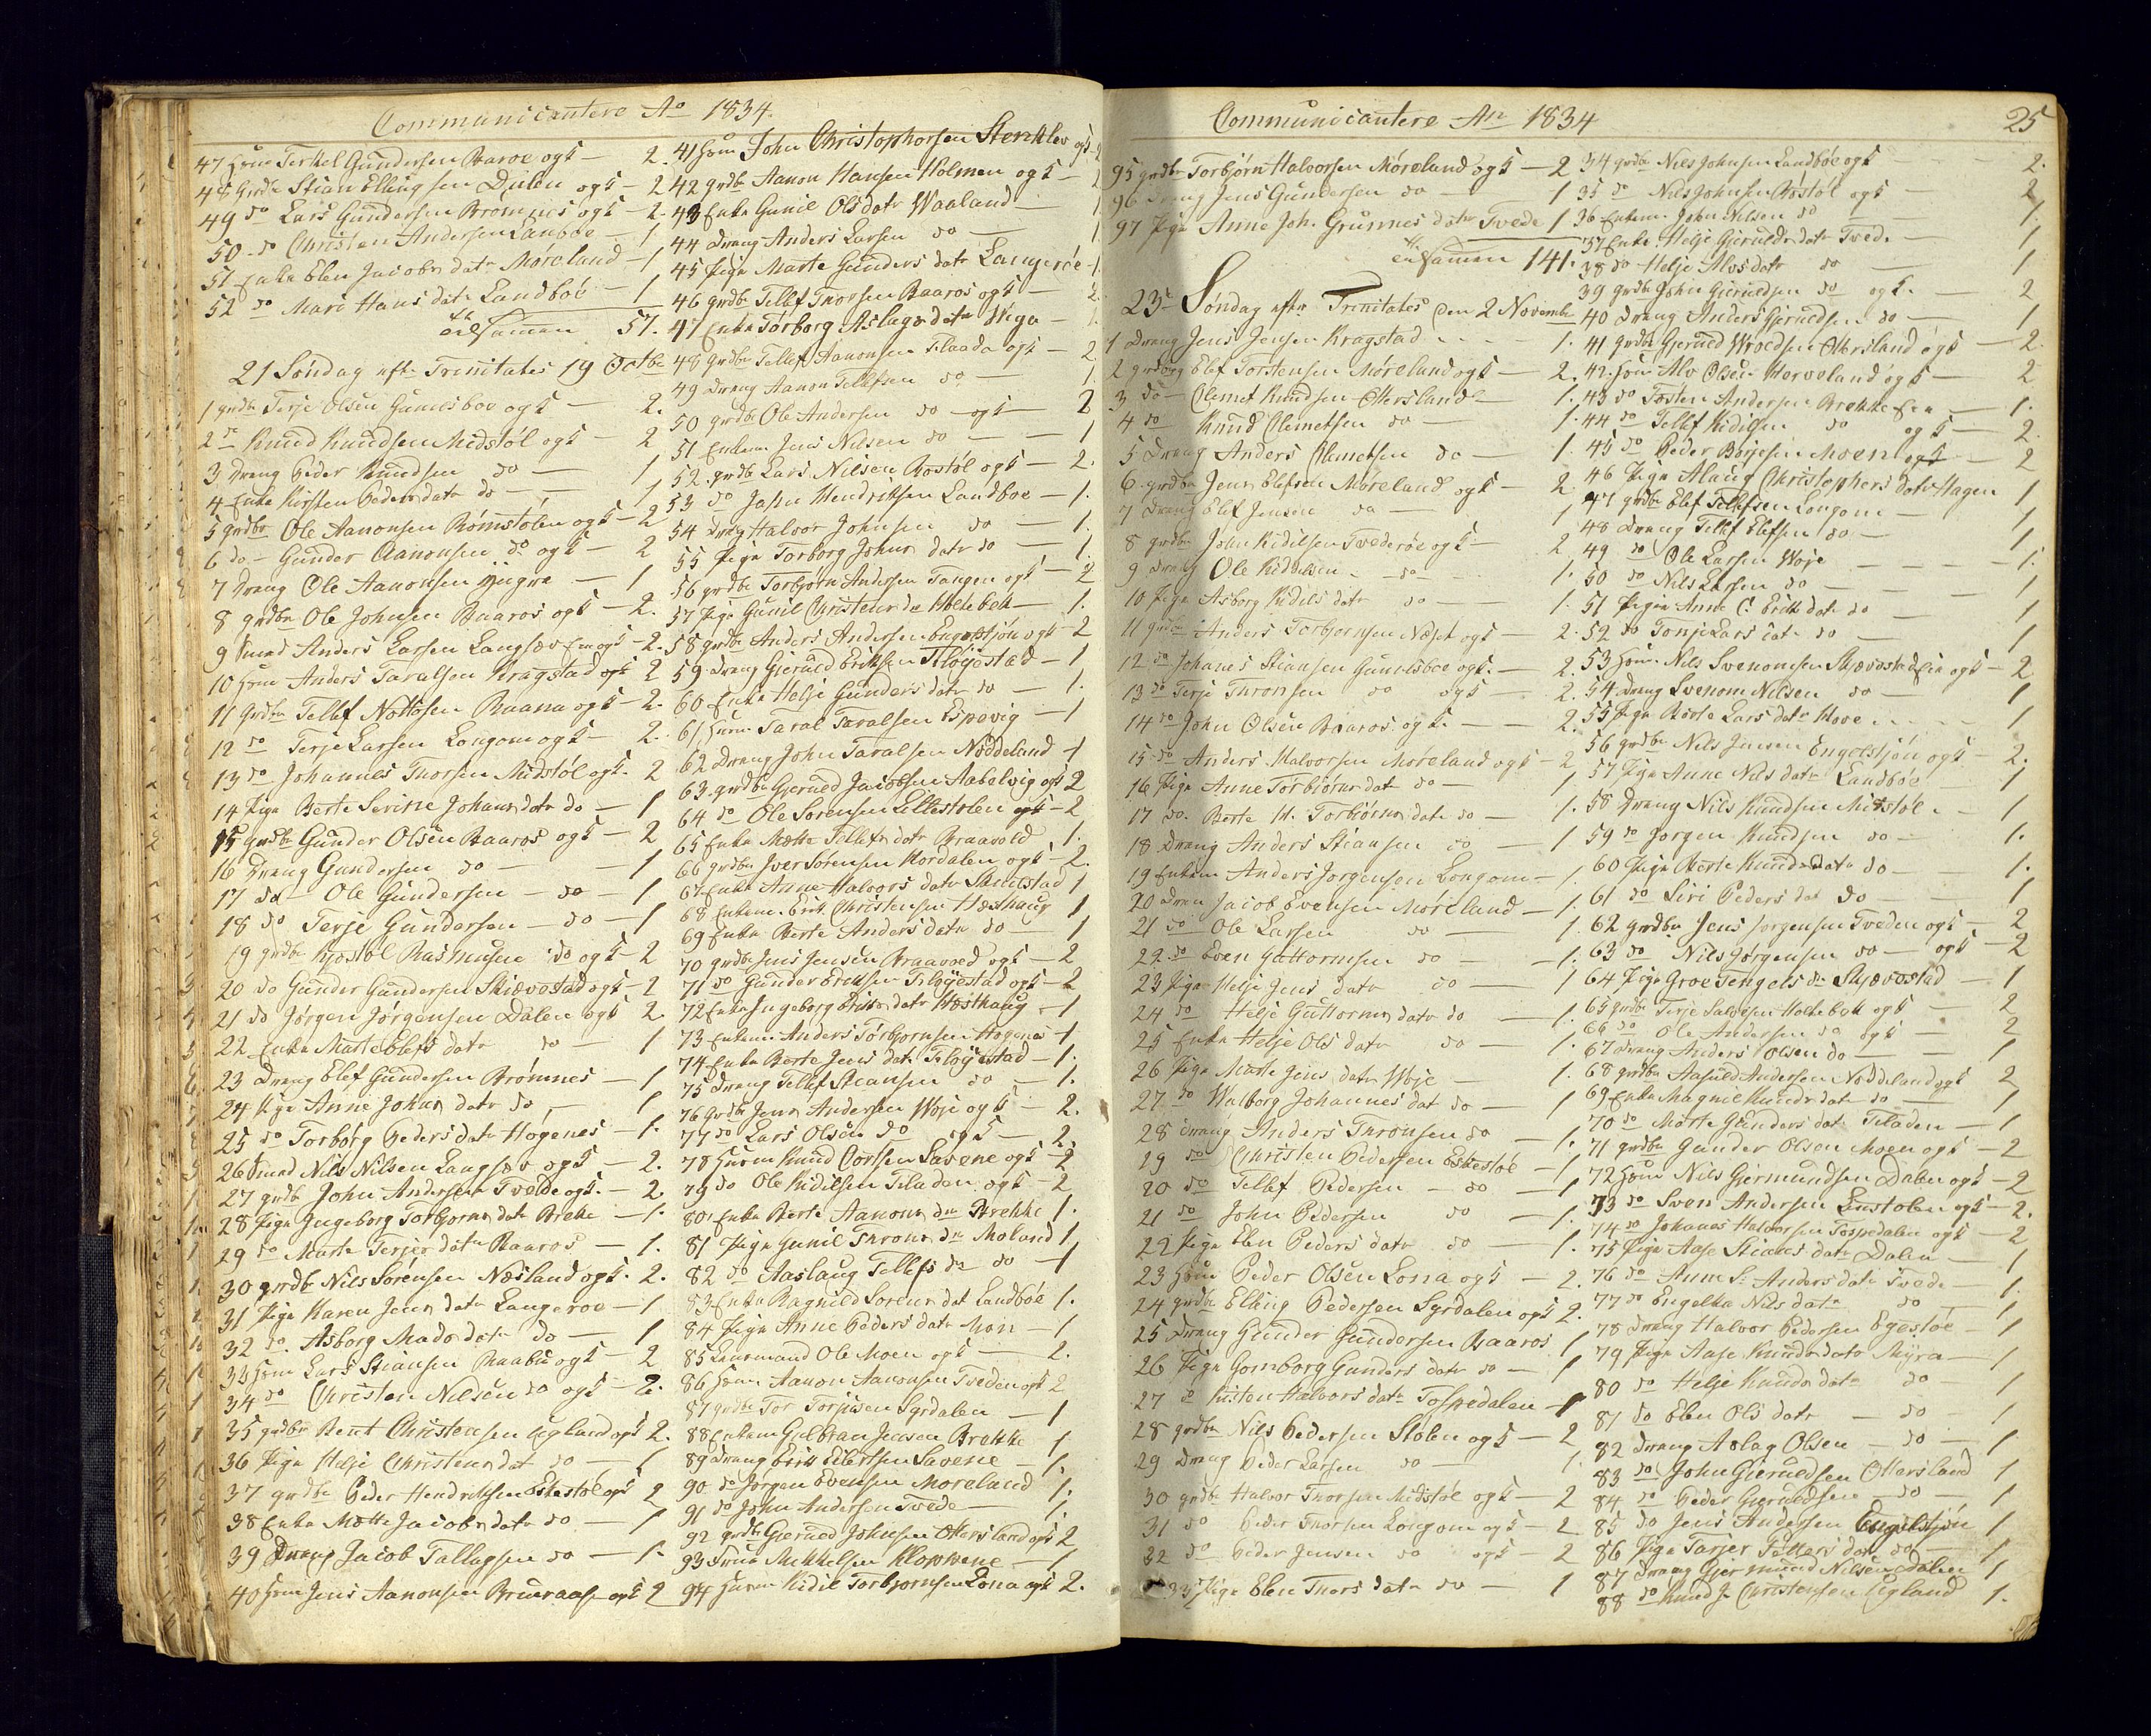 Communicantere Ao 1834.
47 Huusm Terkel Gundersen Baroe og K — 2.
48 Grdbr Stian Ellingsen Dalen og K — 2
49 do Lars Gundersen Brømnes og K — 2.
50 do Christen Andersen Landboe — 1
51 Enke Elen Jacobs datr Møreland — 1
52 do Mari Hans datr Landboe — 1
tilsamen 57.
21 Søndag eftr Trinitates 19 Octbr
1 grdbr Terje Olsen Gunelsboe og K — 2.
2 do Knud Knudsen Midstøl og K — 2
3 Dreng Peder Knudsen do — 1
4 Enke Kirsten Peders datr do — 1
5 grdbr Ole Aanonsen Rømstølen og K — 2
6 do Gunder Aanonsen do og K — 2
7 Dreng Ole Aanonsen — 1
8 grdbr Ole Johnsen Baaros og K — 2.
9 Anders Larsen Langsæv og K — 2.
10 Huusm Anders Taralsen Kragstad og K 2
11 Grdbr Tellef Nottosen Raana og K — 2.
12 do Terje Larsen Longom og K — 2.
13 do Johannes Thorsen Midstøl og K. 2
14 Pige Berte Serine Johans datr do — 1
15 grdbr Gunder Olsen Baaros og K — 2
16 Dreng Gundersen do — 1
17 do Ole Gundersen — do — 1
18 do Terje Gundersen — do — 1
19 grdbr Kjøstol Rasmusen do og K 2
20 do Gunder Gundersen Skiævestad og K — 2
21 do Jørgen Jørgensen Dalen og K 2.
22 Enke Marte Elefs datr do — 1
23 Dreng Elef Gundersen Brømnes — 1
24 Pige Anne Johns datr do — 1
25 do Torborg Peders datr Hogenes — 1.
26 Nils Nilsen Langsæv og K — 2.
27 grdbr John Andersen Tvede og K. — 2.
28 Pige Ingeborg Torbjorns datr Breke — 1.
29 do Marte Terjes datr Baaros — 1.
30 grdbr Nils Sørensen Næsland og K. 2.
31 Pige Karen Jens datr Langeroe — 1
32 do. Asborg Mads datr do — 1
33 Huusm Lars Stiansen Raabu og K — 2
34 do Christen Nilsen do og K — 2.
35 grdbr Bent Christensen Ugland og K 2.
36 Pige Helje Christens dat do — 1
37 grdbr Peder Hendriksen Eskestøl og K 2
38 Enke Mette Jacobs datr do — 1
39 Dreng Jacob Tallagsen do — 1.
40 Huusm Jens Aanonsen og K 2
41 Huusm John Christophersen Stenklev og K 2
42 grdbr Aanon Hansen Holmen og K —
43 Enke Gunil Ols datr Waaland —
44 Dreng Anders Larsen do — 1
45 Pige Marte Gunders datr Langerøe — 1.
46 grdbr Tellef Thorsen Baaros og K — 2.
47 Enke Torborg Aslags datr Wiga — 1.
48 Grdbr Tellef Aanonsen Tilaada og K — 2
49 Dreng Aanon Tellefsen do — 1.
50 grdbr Ole Andersen do og K — 2
51 Enkem Jens Nilsen do — 1
52. grdbr Lars Nilsen Bostøl og K — 2.
53 do Jahn Hendriksen Landboe — 1.
54 Dreng Halvor Johnsen do — 1.
55 Pige Torborg Johns datr do — 1.
56 grdbr Torbjørn Andersen Tangen og K — 2
57 Pige Gunil Christens dr Holtebek — 1.
58 grdbr Anders Andersen Engelstjøn og K — 2
59 Dreng Gjeruld Eriksen Fløyestad — 1
60 Enke Helje Gunders datr do — 1.
61 Huusm Taral Taralsen Espevig — 1
62 Dreng John Taralsen Noddeland — 1
63. grdbr Gjeruld Jacobsen Aabelvig og K 2
64 do Ole Sorensen Lillestolen og K — 2
65 Enke Mette Tellefs datr Braavold 1.
66 grdbr Iver Sørensen Hordalen og K — 2.
67 Enke Anne Halvors datr 1
68 Enkem. Erik Christensen Hæsthaug 1
69 Enke Berte Anders datr do — 1
70 grdbr Jens Jensen Braavold og K — 2
71 do Gunder Eriksen Fløyestad og K — 2
72 Enke Ingeborg datr Hæsthaug — 1
73 Enkem. Anders Torbjornsen Hogenes 1
74 Enke Berte Jens datr Fløyestad — 1.
75 Dreng Tellef Stiansen do — 1.
76 Grdbr Jens Andersen Woje og K — 2.
77 do Lars Olsen do og K — 2.
78 Huusm Knud Corlsen Savene og K 2
79 do Ole Kidilsen Tiladen og K — 2
80 Enke Berte Aanons dr Brekke 1.
81 Pige Gunil Throns dr Moland 1
82 do Aaslaug Tellefs dr do — 1
83 Enke Ragnild Sorens dat Landbøe 1.
84 Pige Anne Peders datr Moin — 1
85 Ole Moen og K — 2.
86 Huusm Aanon Aanonsen Tveden og K 2
87 grdbr Tor Torjusen Syrdalen — 1
88 Enkem Gulbran Jensen Brekke 1
89 Dreng Erik Eilertsen Savene — 1.
90. do Jorgen Evensen Moreland 1.
91 do John Andersen Tvede — 1.
92 grdbr Gieruld Johnsen Ottersland og K 2
93 Mekkelsen Klopkene — 1
94 Huusm Kidil Torbjornsen Lona og K 2.
Communicantere An 1834
25
95 grdbr Torbjørn Halvorsen Møreland og K — 2
96 Dreng Jens Gundersen do — 1
97 Pige Anne Joh. Grunnes datr Tvede 1
tilsamen 141.
23de Søndag eftr Trinitates Den 2 Novembr
1 Dreng Jens Jensen Kragstad 1.
2 grdbr Elef Torstensen Møreland og K — 2.
3 do Olemet Knudsen Ottersland — 1.
4 do Knud Olemetsen do — 1.
5 Dreng Anders Olemetsen do — 1.
6. grdbr Jens Elefsen Møreland og K — 2
7 Dreng Elef Jensen do — 1
8 grdbr John Kidilsen Tvederøe og K — 2
9 Dreng Ole Kidilsen do 1.
10 Pige Asborg Kidils datr do — 1.
11 grdbr Anders Torbjornsen Næset og K — 2.
12 do Johanes Stiansen Gunelsboe og K. — 2.
13 do Terje Thronsen do og K — 2.
14 do John Olsen Baaros og K. — 2.
15 do Anders Halvorsen Moreland og K — 2
16 Pige Anne Torbiørns dat do — 1
17 do. Berte M. Torbiørns datr do — 1.
18 Dreng Anders Stiansen do — 1
19 Enkem Anders Jorgensen Longom — 1.
20 Dren Jacob Evensen Møreland — 1.
21 do Ole Larsen do — 1.
22 do Even Guttormsen do — 1.
23 Pige Helje Jens datr do — 1
24 do Helje Guttorms datr do — 1.
25 Enke Helje Ols datr do — 1.
26 Pige Marte Jens datr Woje — 1.
27 do Walborg Johannes dat do — 1
28 Dreng Anders Thronsen do — 1.
29 do Christen Pedersen Eskestøe — 1
20 do Tellef Pedersen — do — 1
21 do John Pedersen do — 1.
22 Pige Elen Peders datr do — 1.
23 Huusm Peder Olsen Lona og K — 2.
24 grdbr Elling Pedersen Syrdalen og K 2.
25 Dreng Gunder Gundersen Baaros 1
26 Pige Gomborg Gunders datr do — 1
27 do Kirsten Halvors datr Tospedalen — 1
28 grdbr Nils Pedersen Stølen og K — 2
29 Dreng Peder Larsen do — 1.
30 grdbr Halvor Thorsen Midstøl og K — 2
31 do Peder Thorsen Longom og K — 2
32 do Peder Jensen do og K — 2
33 Pige Elen Thors datr do — 1
34 grdbr Nils Johnsen Landbøe og K — 2.
35 do Nils Johnsen Bostøl og K — 2
36 Enkem. John Nilsen do — 1.
37 Enke. Helje Gjerulds datr Tved. — 1
38 do Helje Alvs datr do — 1
39 grdbr John Gjeruldsen do og K. — 2
40 Dreng Anders Gjeruldsen do — 1
41 grdbr Gjeruld Wroldsen Ottersland og K — 2.
42. Huusm Alv Olsen Herveland og K — 2
43 do Tosten Andersen Brekke — 1.
44 do Tellef Kidilsen do og K — 2.
45 do Peder Børjesen Moen og K — 2
46 Pige Alaug Christophers datr Hagen 1
47 grdbr Elef Tellefsen Longom — 1
48 Dreng Tellef Elefsen do — 1
49 do Ole Larsen Woje — 1.
50 do Nils Larsen do — 1
51 Pige Anne C. Eriks datr do — 1
52 do Tonje Lars datr do — 1
53 Huusm. Nils Svenomsen Skævestad og K — 2
54 Dreng Svenom Nilsen do — 1
55 Pige Berte Lars datr Hove 1
56 grdbr Nils Jensen Engelstjøn og K — 2.
57 Pige Anne Nils datr Landbøe 1
58 Dreng Nils Knudsen Midstøl — 1
59 do Jorgen Knudsen do — 1.
60 Pige Berte Knuds datr do — 1.
61 do Siri Peders dat do — 1
62 grdbr Jens Jorgensen Tveden og K — 2
63 do Nils Jørgensen do — og K — 2
64 Pige Groe Tengels dr Skjævestad — 1
65 grdbr Terje Salvesen Holtebek og K — 2
66 do Ole Andersen do og K — 2
67 Dreng Anders Olsen do — 1
68 grdbr Aasuld Andersen Noddeland og K 2
69 Enke Magnel Knuds dat do — 1
70 do Marte Gunders dat Tiladen — 1
71 grdbr Gunder Olsen Moen og K — 2
72 Huusm Nils Gjermundsen Dalen og K — 2
73 do Sven Andersen Lunstolen og K — 2.
74 do Johanes Halvorsen Tospedalen og K — 2
75 Pige Aase Stians datr Dalen — 1
76 do Anne S. Anders datr Tvede — 1.
77 do Engelka Nils datr do — 1
78 Dreng Halvor Pedersen Egestøe — 1
79 Pige Aase Knuds datr Myra — 1
80 do Helje Knuds datr do — 1
81 do Elen Ols datr — do — 1
82 Dreng Aslag Olsen — do — 1.
83 do John Gieruldsen Ottersland 1
84 do Peder Gieruldsen — do — 1
85 do Jens Andersen Engelstjøn 1
86 Pige Tarjer Pettars datr do — 1
87 Dreng Gjermund Nilsen Dalen 1
88 do Knud J. Christensen Ugland 1.